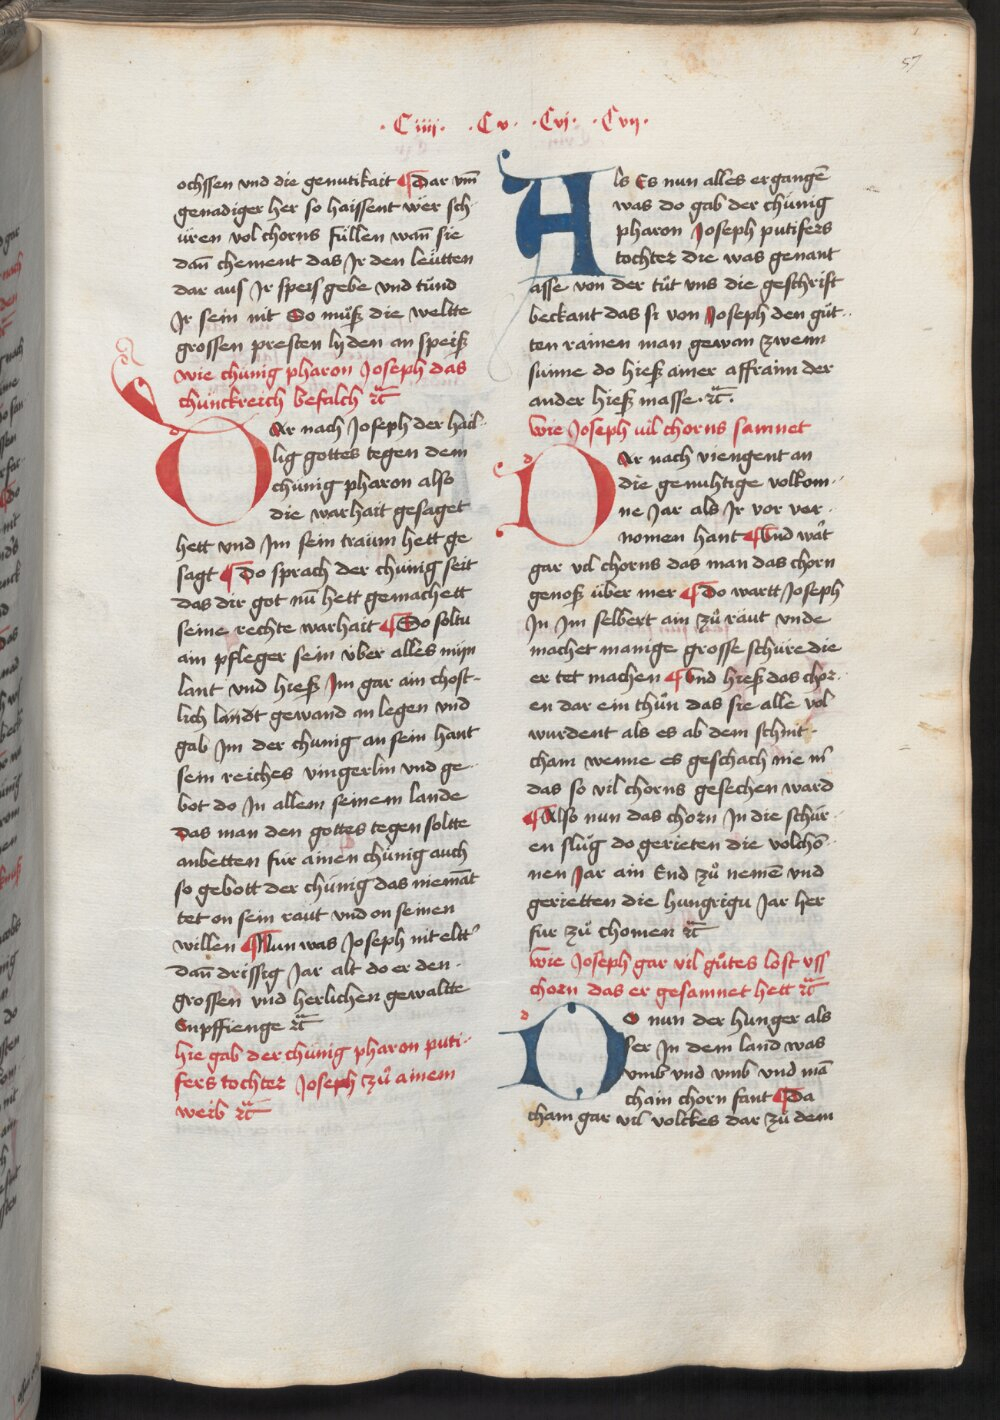 57
·Ciiij· ·Cv· ·Cvj· ·Cvij·
ochssen vnd die genutikait ¶Dar vm̄
genadiger her so haissent wer sch
üren vol chorns füllen wan̄ sie
dan̄ chement das Jr den leütten
dar aus Jr speis gebe vnd tünd
Jr sein nit So müß die weltte
grossen presten lyden an speiß
wie chünig pharon Joseph das
chünckreich befalch ꝛc̄
DAr nach Joseph der hail
lig gottes tegen dem
chünig pharon also
die warhait gesaget
hett vnd Jm sein traum hett ge
sagt ¶Do sprach der chünig seit
das dir got nū hett gemachett
seine rechte warhait ¶So soltu
ain pfleger sein über alles mijn
lant vnd hieß Jm gar ain chost-
lich landt gewand an legen vnd
gab Jm der chünig an sein hant
sein reiches vingerlin vnd ge
bot do Jn allem seinem lande
das man den gottes tegen soltte
anbetten für ainen chünig auch
so gebott der chünig das niemāt
tet on sein raüt vnd on seinen
willen ¶Nun was Joseph nit eltt'
dan̄ drissig Jar alt do er den
grossen vnd herlichen gewaltte
Enpffienge ꝛc̄
hie gab der chünig pharon puti-
fers tochter Joseph zů ainem
weib ꝛc̄
Als Es nun alles ergangē
was do gab der chünig
pharon Joseph putifers
tochter die was genant
asse von der tüt vns die geschrift
beckant das si von Joseph den güt
ten rainen man gewan zwenn
sunne do hieß ainer affraim der
ander hieß masse ꝛc̄.
wie Joseph vil chorns samnet
DAr nach viengent an
die genuhtige volkom-
ne Jar als Jr vor ver
nomen hant ¶Vnd wa't
gar vil chorns das man das chorn
genoß über mer ¶Do wartt Joseph
Jn Jm selbert ain zů raut vnde
machet manige grosse schüre die
er tet machen ¶Vnd hieß das chor-
en dar ein thün das sie alle vol
wurdent als es ab dem schnit
cham wenne es geschach nie m̄
das so vil chorns gesechen ward
¶Also nun das chorn Jn die schür
en slüg do gerieten die volchō
nen Jar ain End zů nemē vnd
gerietten die hungrigu Jar her
für zů chomen ꝛc̄
wie Joseph gar vil gůtes lost vss
chorn das er gesamnet hett ꝛc̄
DO nun der hunger als
ser Jn dem land was
vmb vnd vmb vnd mā
chain chorn fant ¶Da
cham gar vil volckes dar zů dem